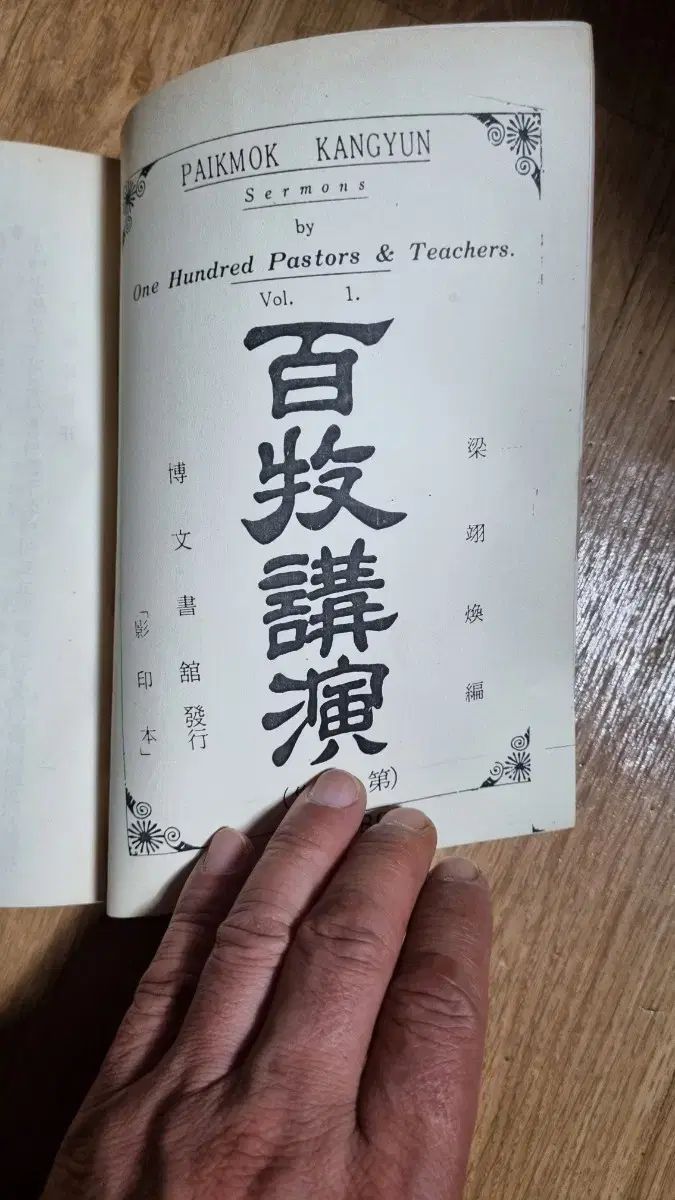 PAIKMOK KANGYUN
Sermons
by
One Hundred Pastors & Teachers.
Vol. 1.
百牧講演
(第
梁翊煥編
博文書舘發行
「影印本」